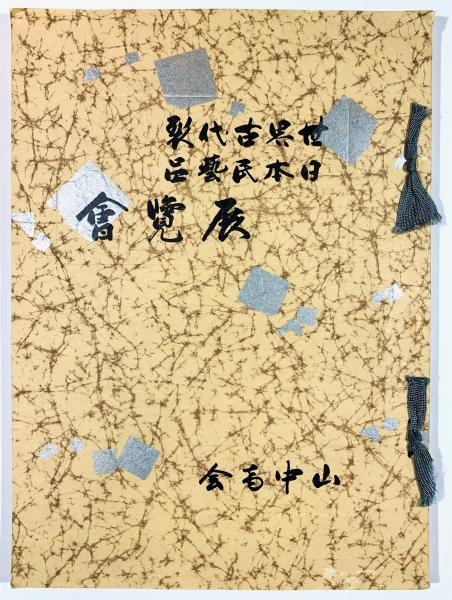 世界古代裂
日本民藝品
展覽會
山中商会